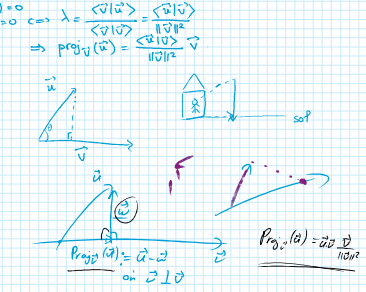 ) = 0
= 0 ⟺ λ = <v⃗|u⃗> / <v⃗|v⃗> = <u⃗|v⃗> / ||v⃗||²
⇒ proj_v⃗(u⃗) = <u⃗|v⃗> / ||v⃗||² v⃗
u⃗
θ
v⃗
sol
u⃗
w⃗
v⃗
Proj_v⃗(u⃗) := u⃗ - w⃗
où w⃗ ⊥ v⃗
Proj_v⃗(u⃗) = u⃗·v⃗ v⃗ / ||v⃗||²